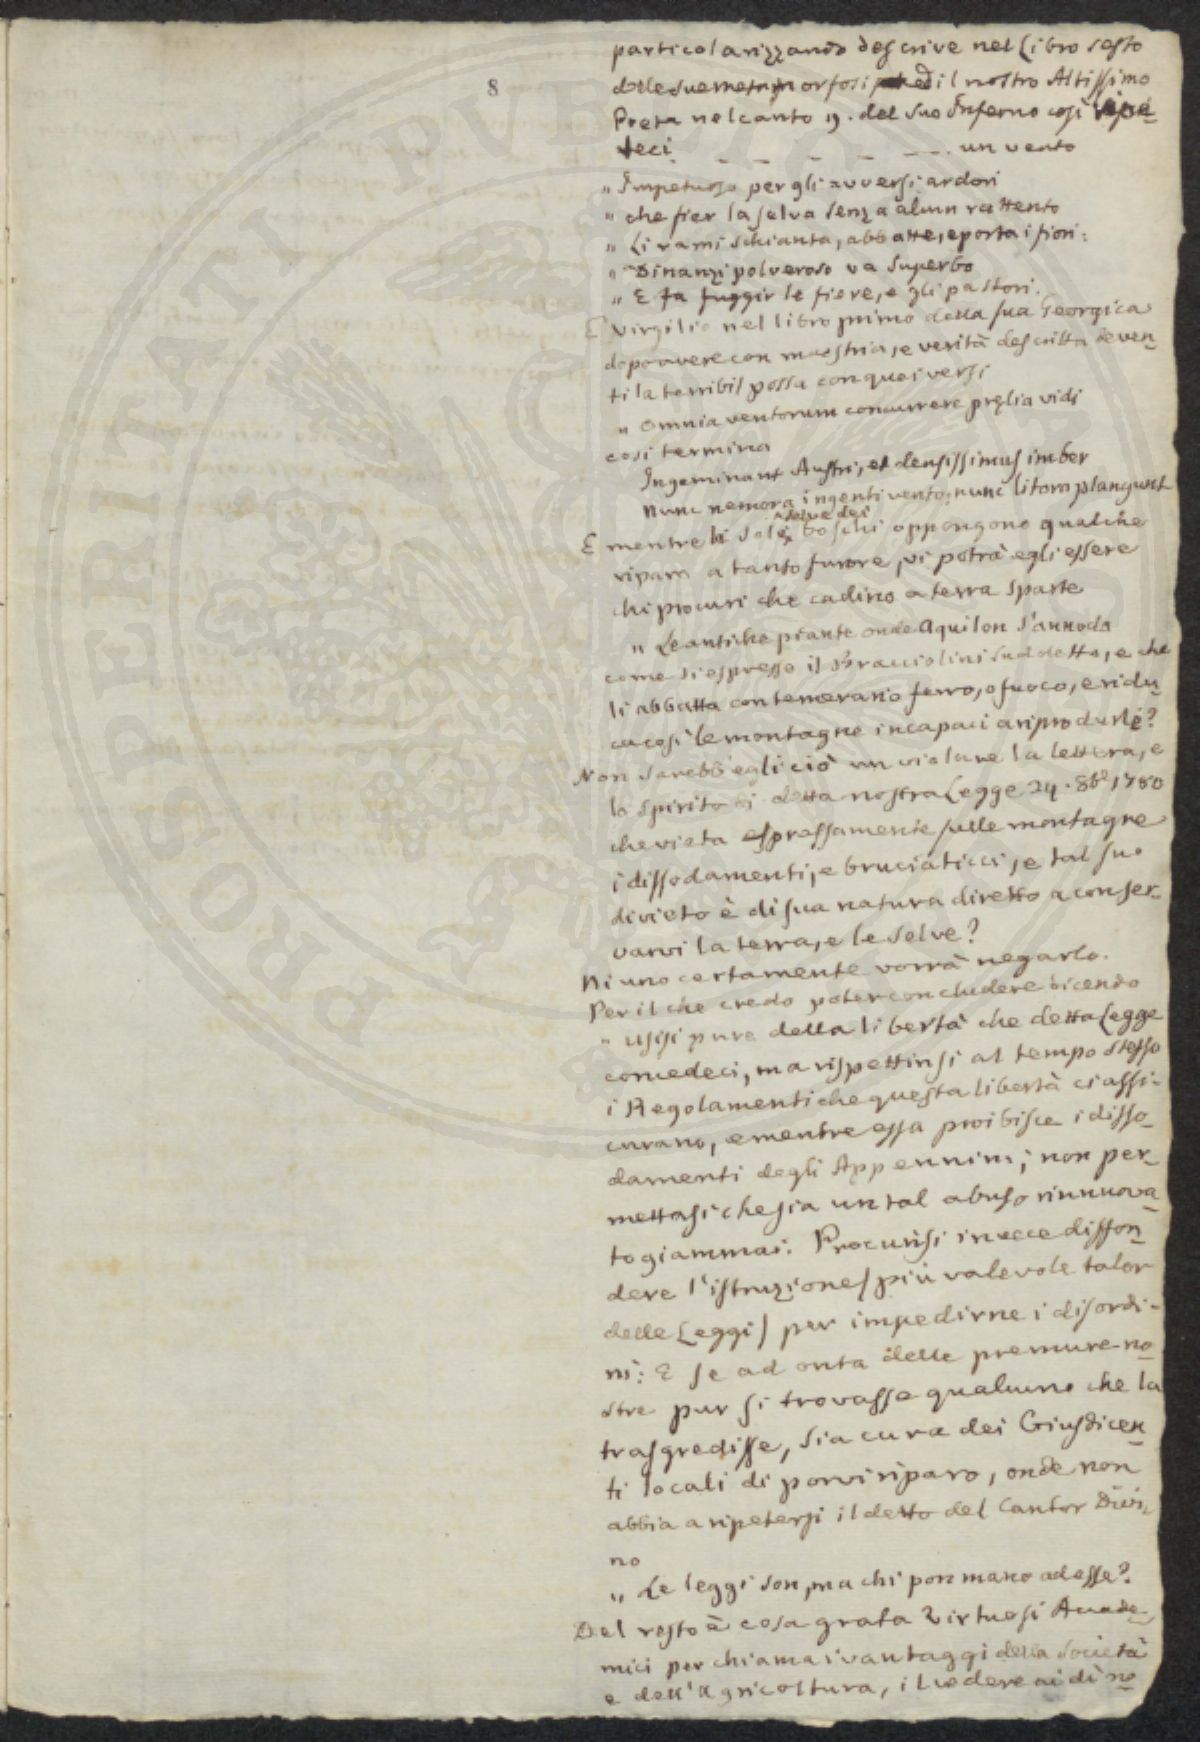 8
particolarizzando descrive nel Libro sesto
delle sue metamorfosi ed il nostro Altissimo
Poeta nel canto 9. del suo Inferno così
deci _ _ _ _ _ _ un vento
" Impetuoso per gli avversi ardori
" che fier la selva senza alcun rattento
" Li rami schianta, abbatte, e porta i fiori:
" Dinanzi polveroso va superbo
" E fa fuggir le fiere, e gli pastori.
E Virgilio nel libro primo della sua Georgica
dopo avere con maestria, e verità descritta de ven-
ti la terribil possa con quei versi
" Omnia ventorum concurrere pręlia vidi
così termina
Ingeminant Austri, et densissimus imber
Nunc nemora ingenti vento, nunc litora plangunt
selve dei
E mentre le sole boschi oppongono qualche
riparo a tanto furore, vi potrà egli essere
chi procuri che cadino a terra sparte
" Le antiche piante onde Aquilon s'annoda
come si espresse il Bracciolini suddetto, e che
li abbatta con temerario ferro, o fuoco, e ridu-
ca così le montagne incapaci a riprodurle?
Non sarebb'egli ciò un violare la lettera, e
lo spirito di detta nostra Legge 24. 8bre 1780
che vieta espressamente sulle montagne
i dissodamenti, e bruciaticci, e tal suo
divieto è di sua natura diretto a conser-
varvi la terra, e le selve?
Niuno certamente vorrà negarlo.
Per il che credo poter concludere dicendo
" Usisi pure della libertà che detta Legge
concedeci, ma rispettinsi al tempo stesso
i Regolamenti che questa libertà ci assi-
curano, e mentre essa proibisce i disso-
damenti degli Appennini; non per-
mettasi che sia un tal abuso rinnuova-
to giammai. Procurisi invece diffon-
dere l'istruzione (più valevole talor
delle Leggi) per impedirne i disordi-
ni: E se ad onta delle premure no-
stre pur si trovasse qualcuno che la
trasgredisse, sia cura dei Giusdicen-
ti locali di porvi riparo, onde non
abbia a ripetersi il detto del Cantor Divi-
no
" Le leggi son, ma chi pon mano ad esse?
Del resto è cosa grata Virtuosi Accade-
mici per chi ama i vantaggi della società
e dell'Agricoltura, il vedere ai dì no-
PROSPERITATI PUBLICAE